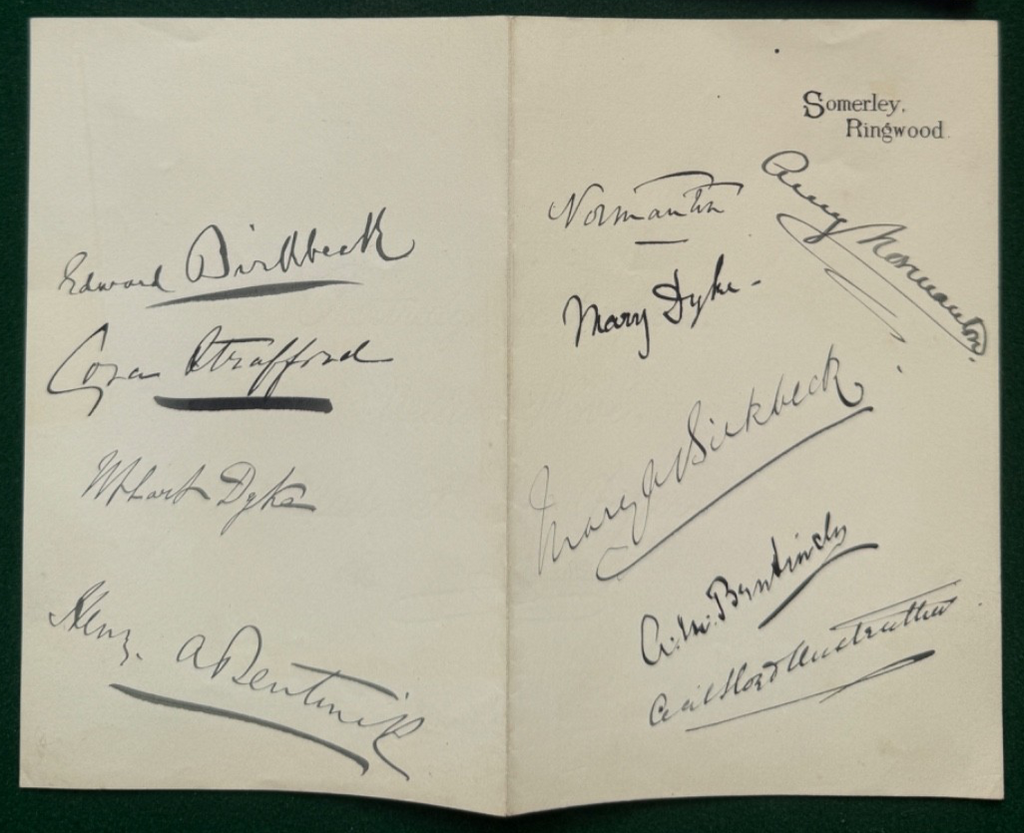 Edward Birkbeck
Cora Strafford
W Hart Dyke
Henry A Bentinck
Somerley,
Ringwood
Normanton
Amy Normanton
Mary Dyke
Mary A Birkbeck
A. M. Bentinck
Cecil Lloyd Anstruther